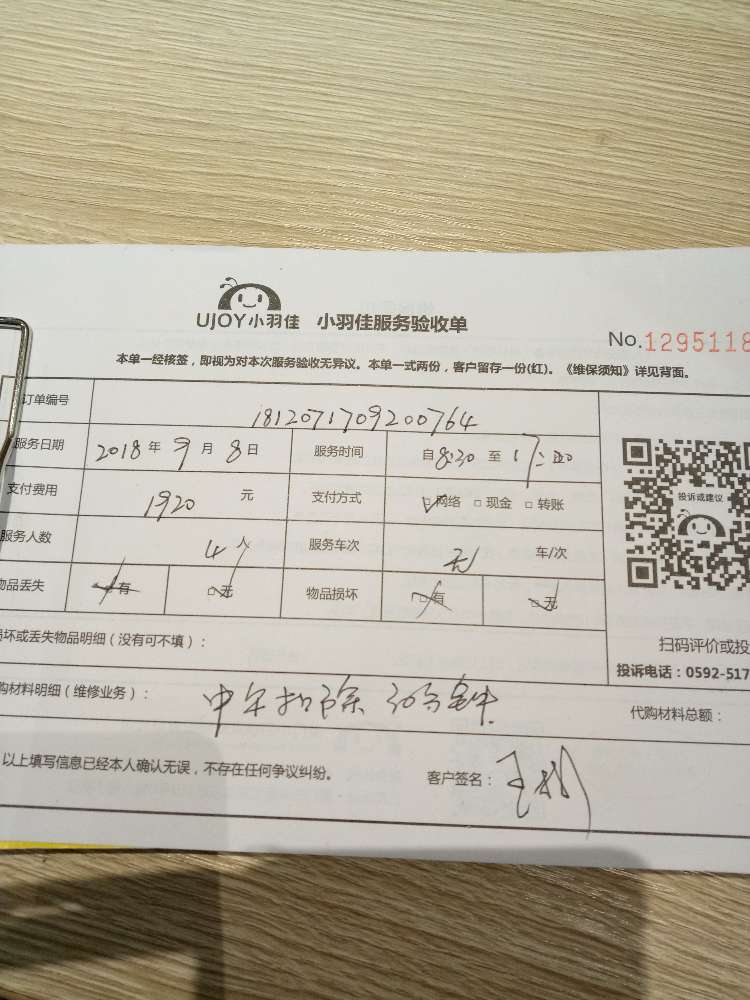 UJOY小羽佳 小羽佳服务验收单
No.1295118
本单一经核签，即视为对本次服务验收无异议。本单一式两份，客户留存一份(红)。《维保须知》详见背面。
订单编号 181207170920​0764
服务日期 2018年9月8日 服务时间 自8:30至17:00
支付费用 1920元 支付方式 ☑网络 □现金 □转账
服务人数 4人 服务车次 无 车/次
物品丢失 □有 □无 物品损坏 □有 □无
投诉或建议
坏或丢失物品明细（没有可不填）：
扫码评价或投
投诉电话：0592-517
购材料明细（维修业务）： 中午扣除30分钟
代购材料总额：
以上填写信息已经本人确认无误，不存在任何争议纠纷。 客户签名：